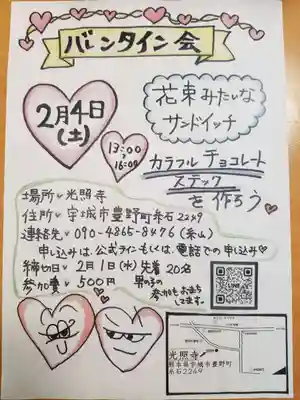 バレンタイン会
2月4日
(土)
13:00
〜
16:00
花束みたいな
サンドイッチ
カラフル チョコレート
ステック
を作ろう
場所 光照寺
住所 宇城市豊野町糸石2249
連絡先 090-4865-8476 (糸山)
申し込みは、公式ラインもしくは、電話での申し込み
締切日 2月1日(水) 先着20名
参加費 500円
男の子の
参加もお待ち
してます。
LINE
光照寺
熊本県宇城市豊野町
糸石2249